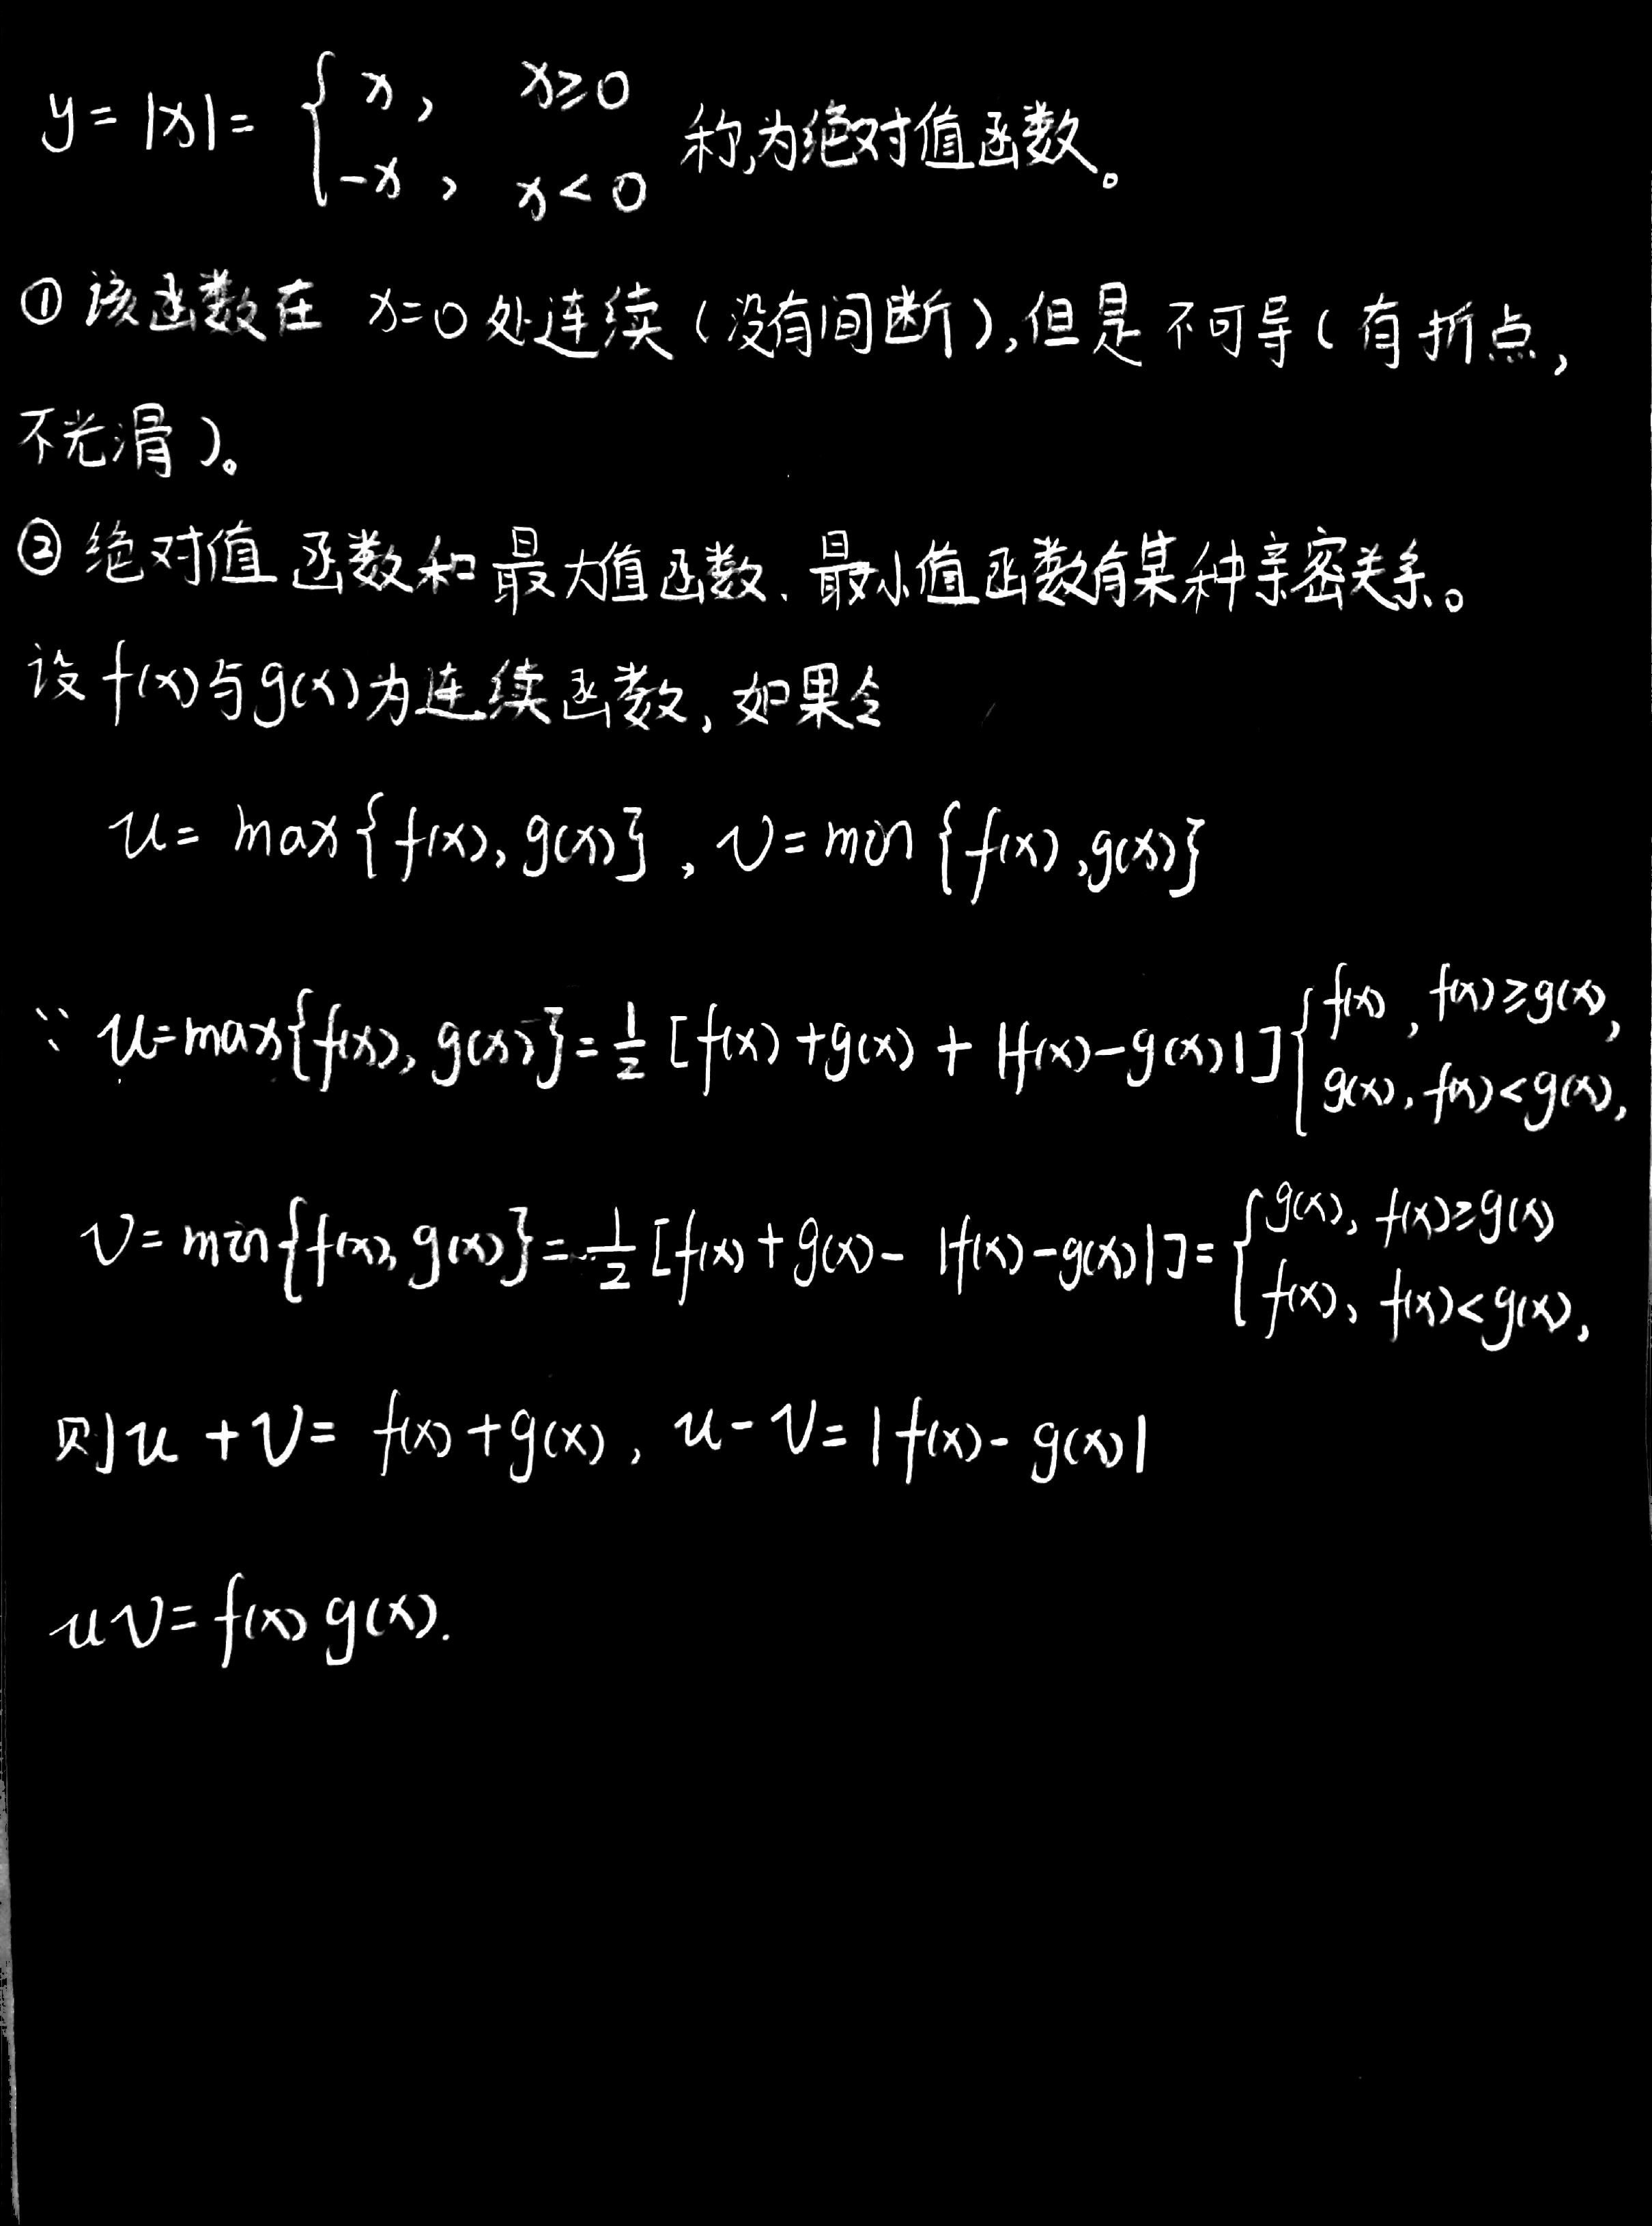 y = |x| = { x, x≥0
-x, x<0 称为绝对值函数。
① 该函数在 x=0 处连续(没有间断),但是不可导(有折点,
不光滑)。
② 绝对值函数和最大值函数、最小值函数有某种亲密关系。
设 f(x)与g(x)为连续函数,如果令
u = max{f(x), g(x)}, v = min{f(x), g(x)}
∵ u=max{f(x), g(x)}=1/2 [f(x)+g(x)+|f(x)-g(x)|] { f(x), f(x)≥g(x),
g(x), f(x)<g(x),
v = min{f(x), g(x)}=1/2 [f(x)+g(x)-|f(x)-g(x)|]= { g(x), f(x)≥g(x)
f(x), f(x)<g(x),
则u+v= f(x)+g(x), u-v=|f(x)-g(x)|
uv=f(x)g(x).